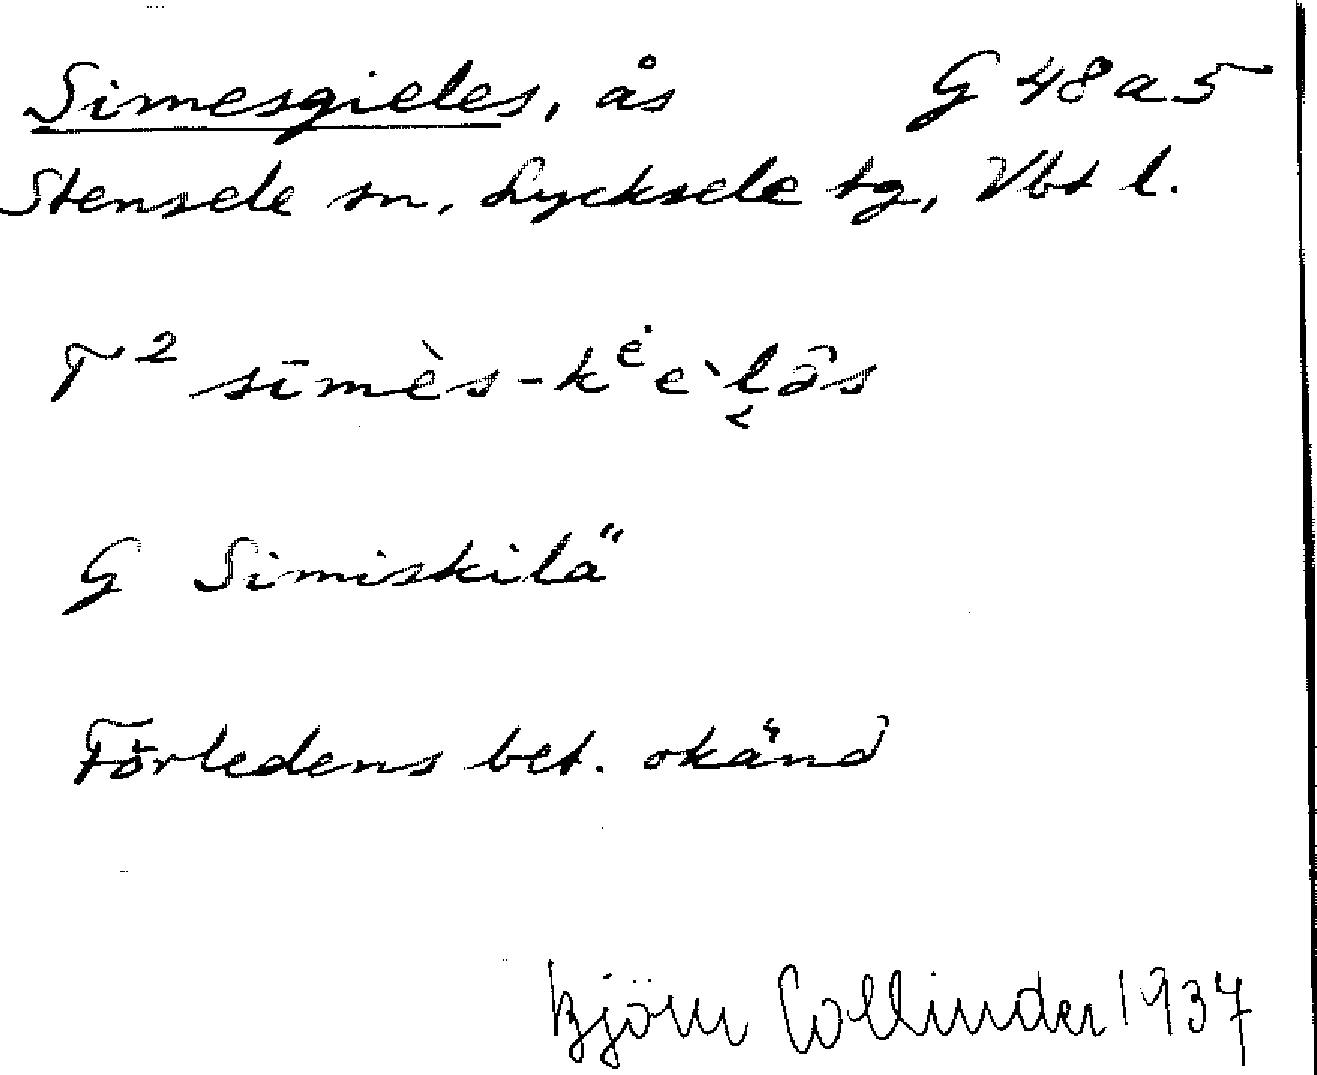 Simesgieles, ås G 48 a 5
Stensele sn, Lycksele tg, Vbt l.
T² sīmès-kėe`l̬âs
G Simiskilä
Förledens bet. okänd
Björn Collinder 1937